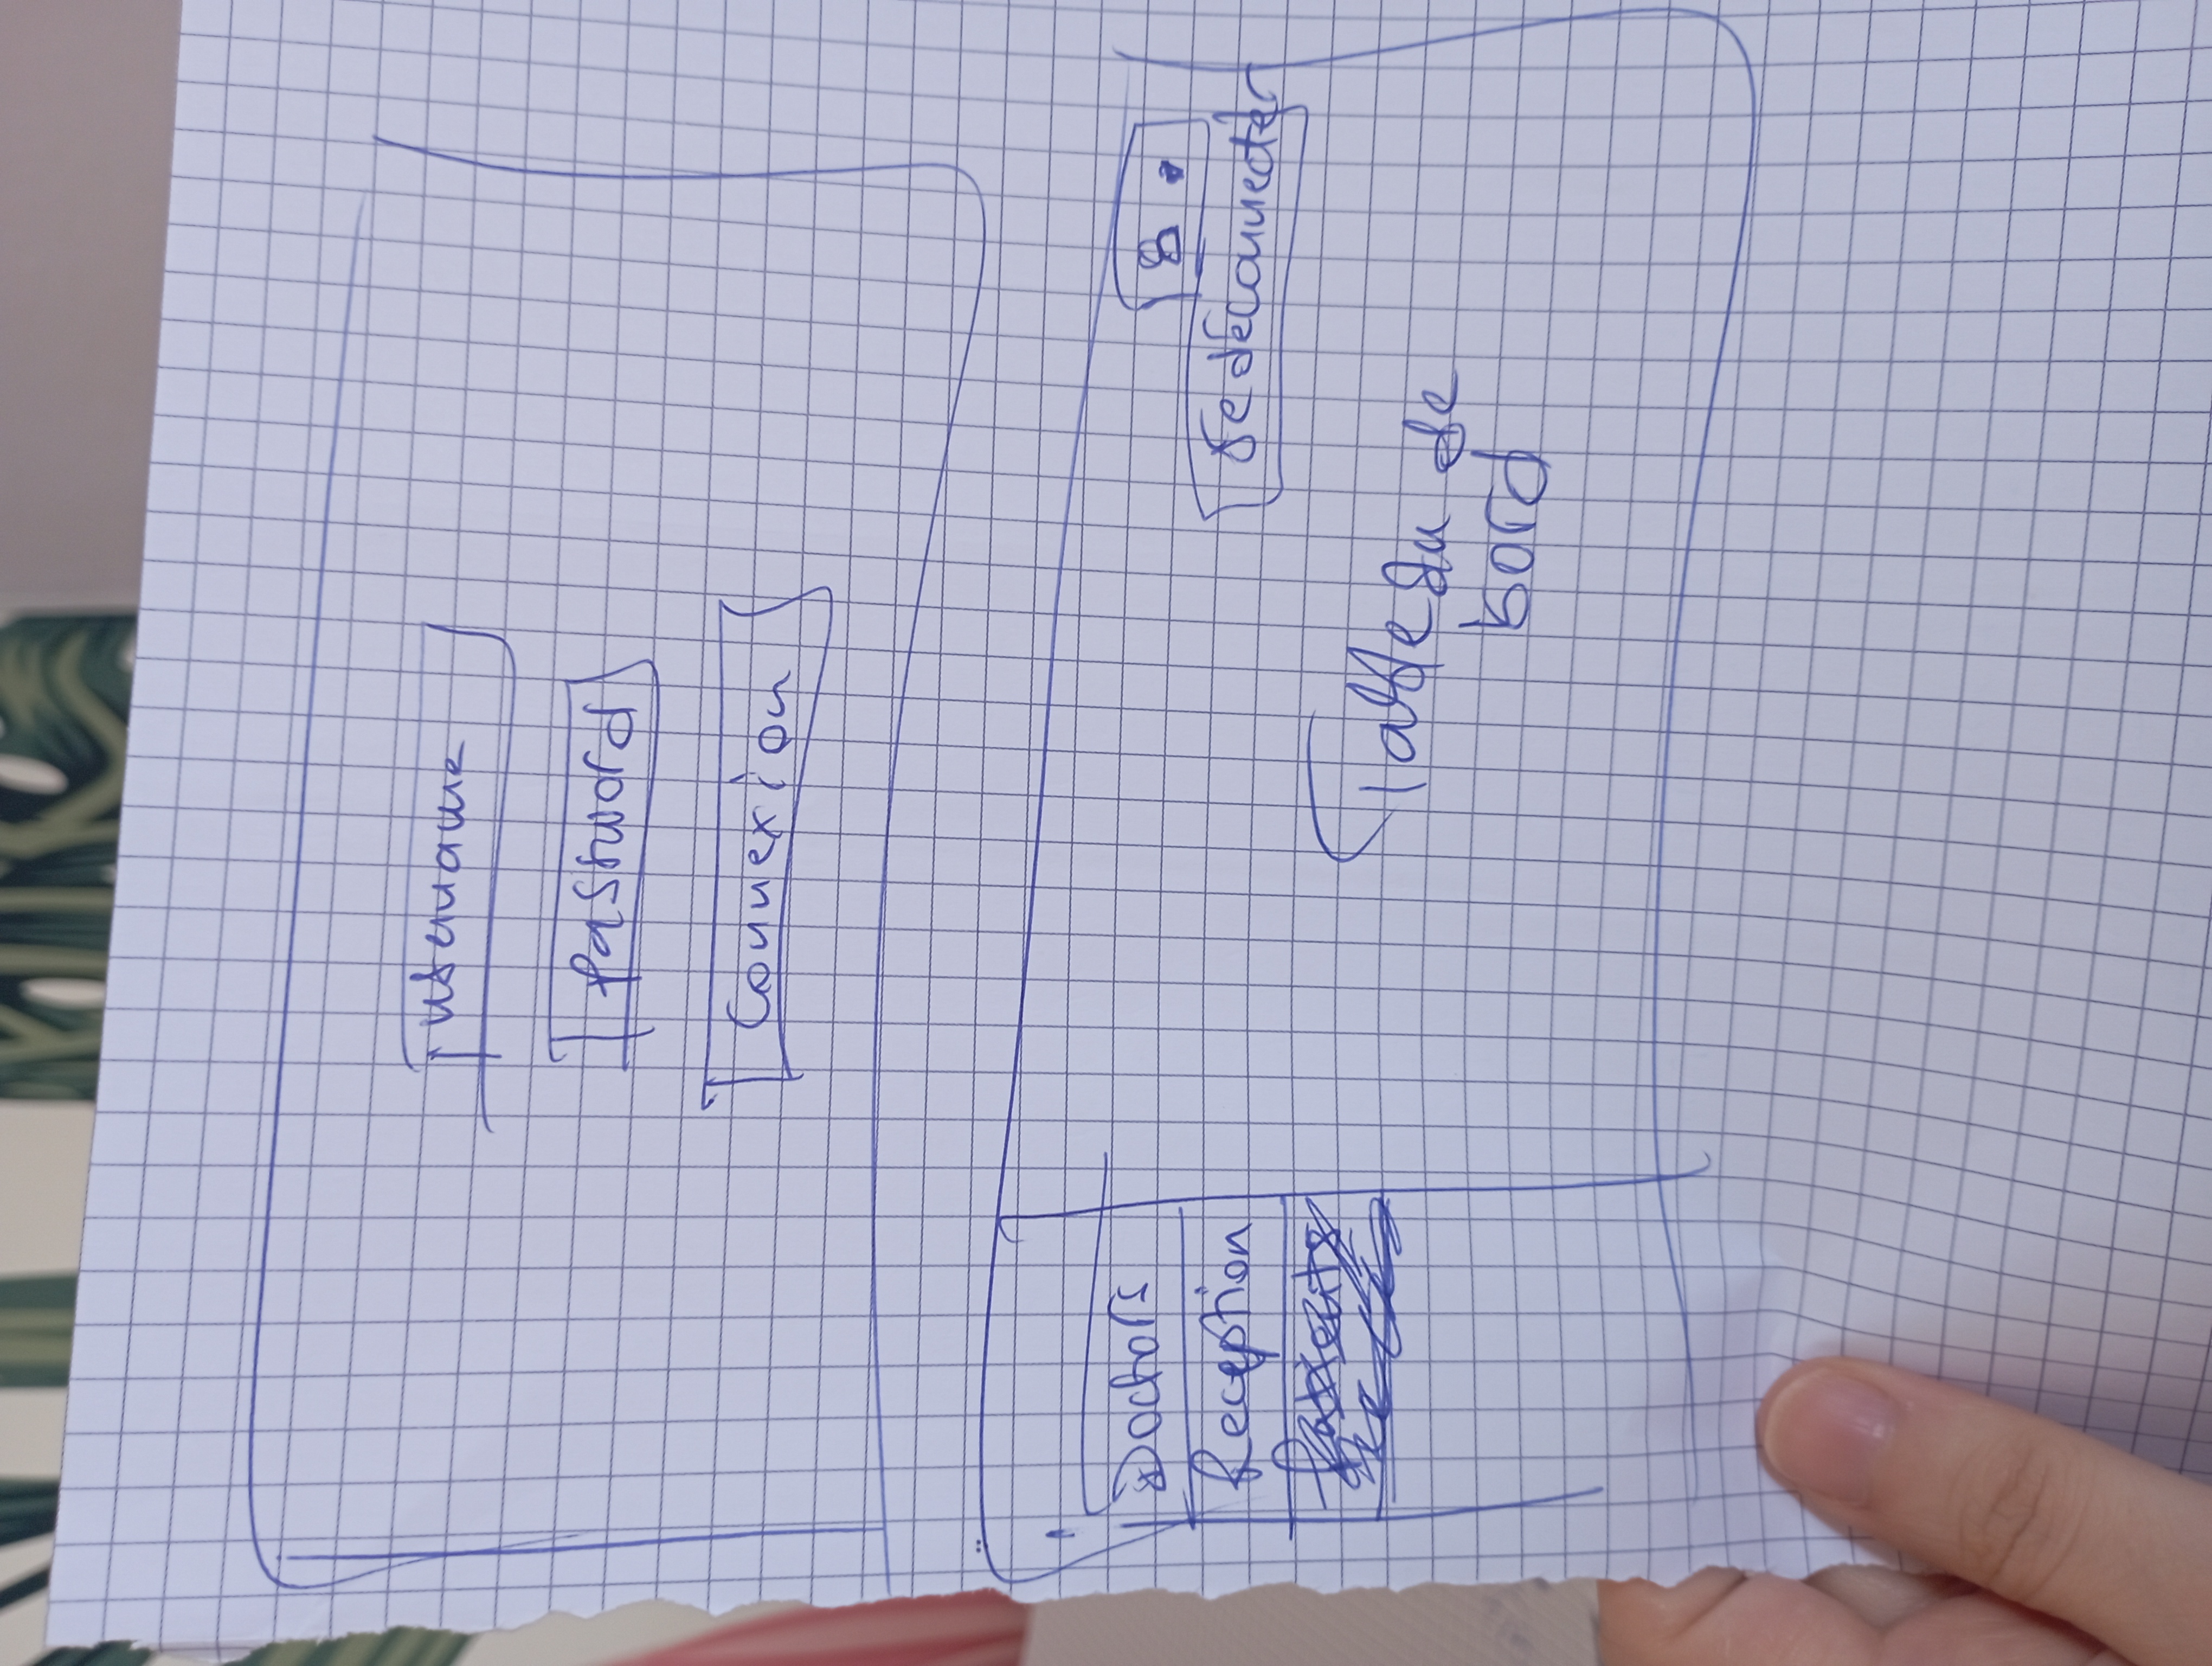 username
Password
Connexion
Doctors
Reception
Se déconnecter
Tableau de
bord